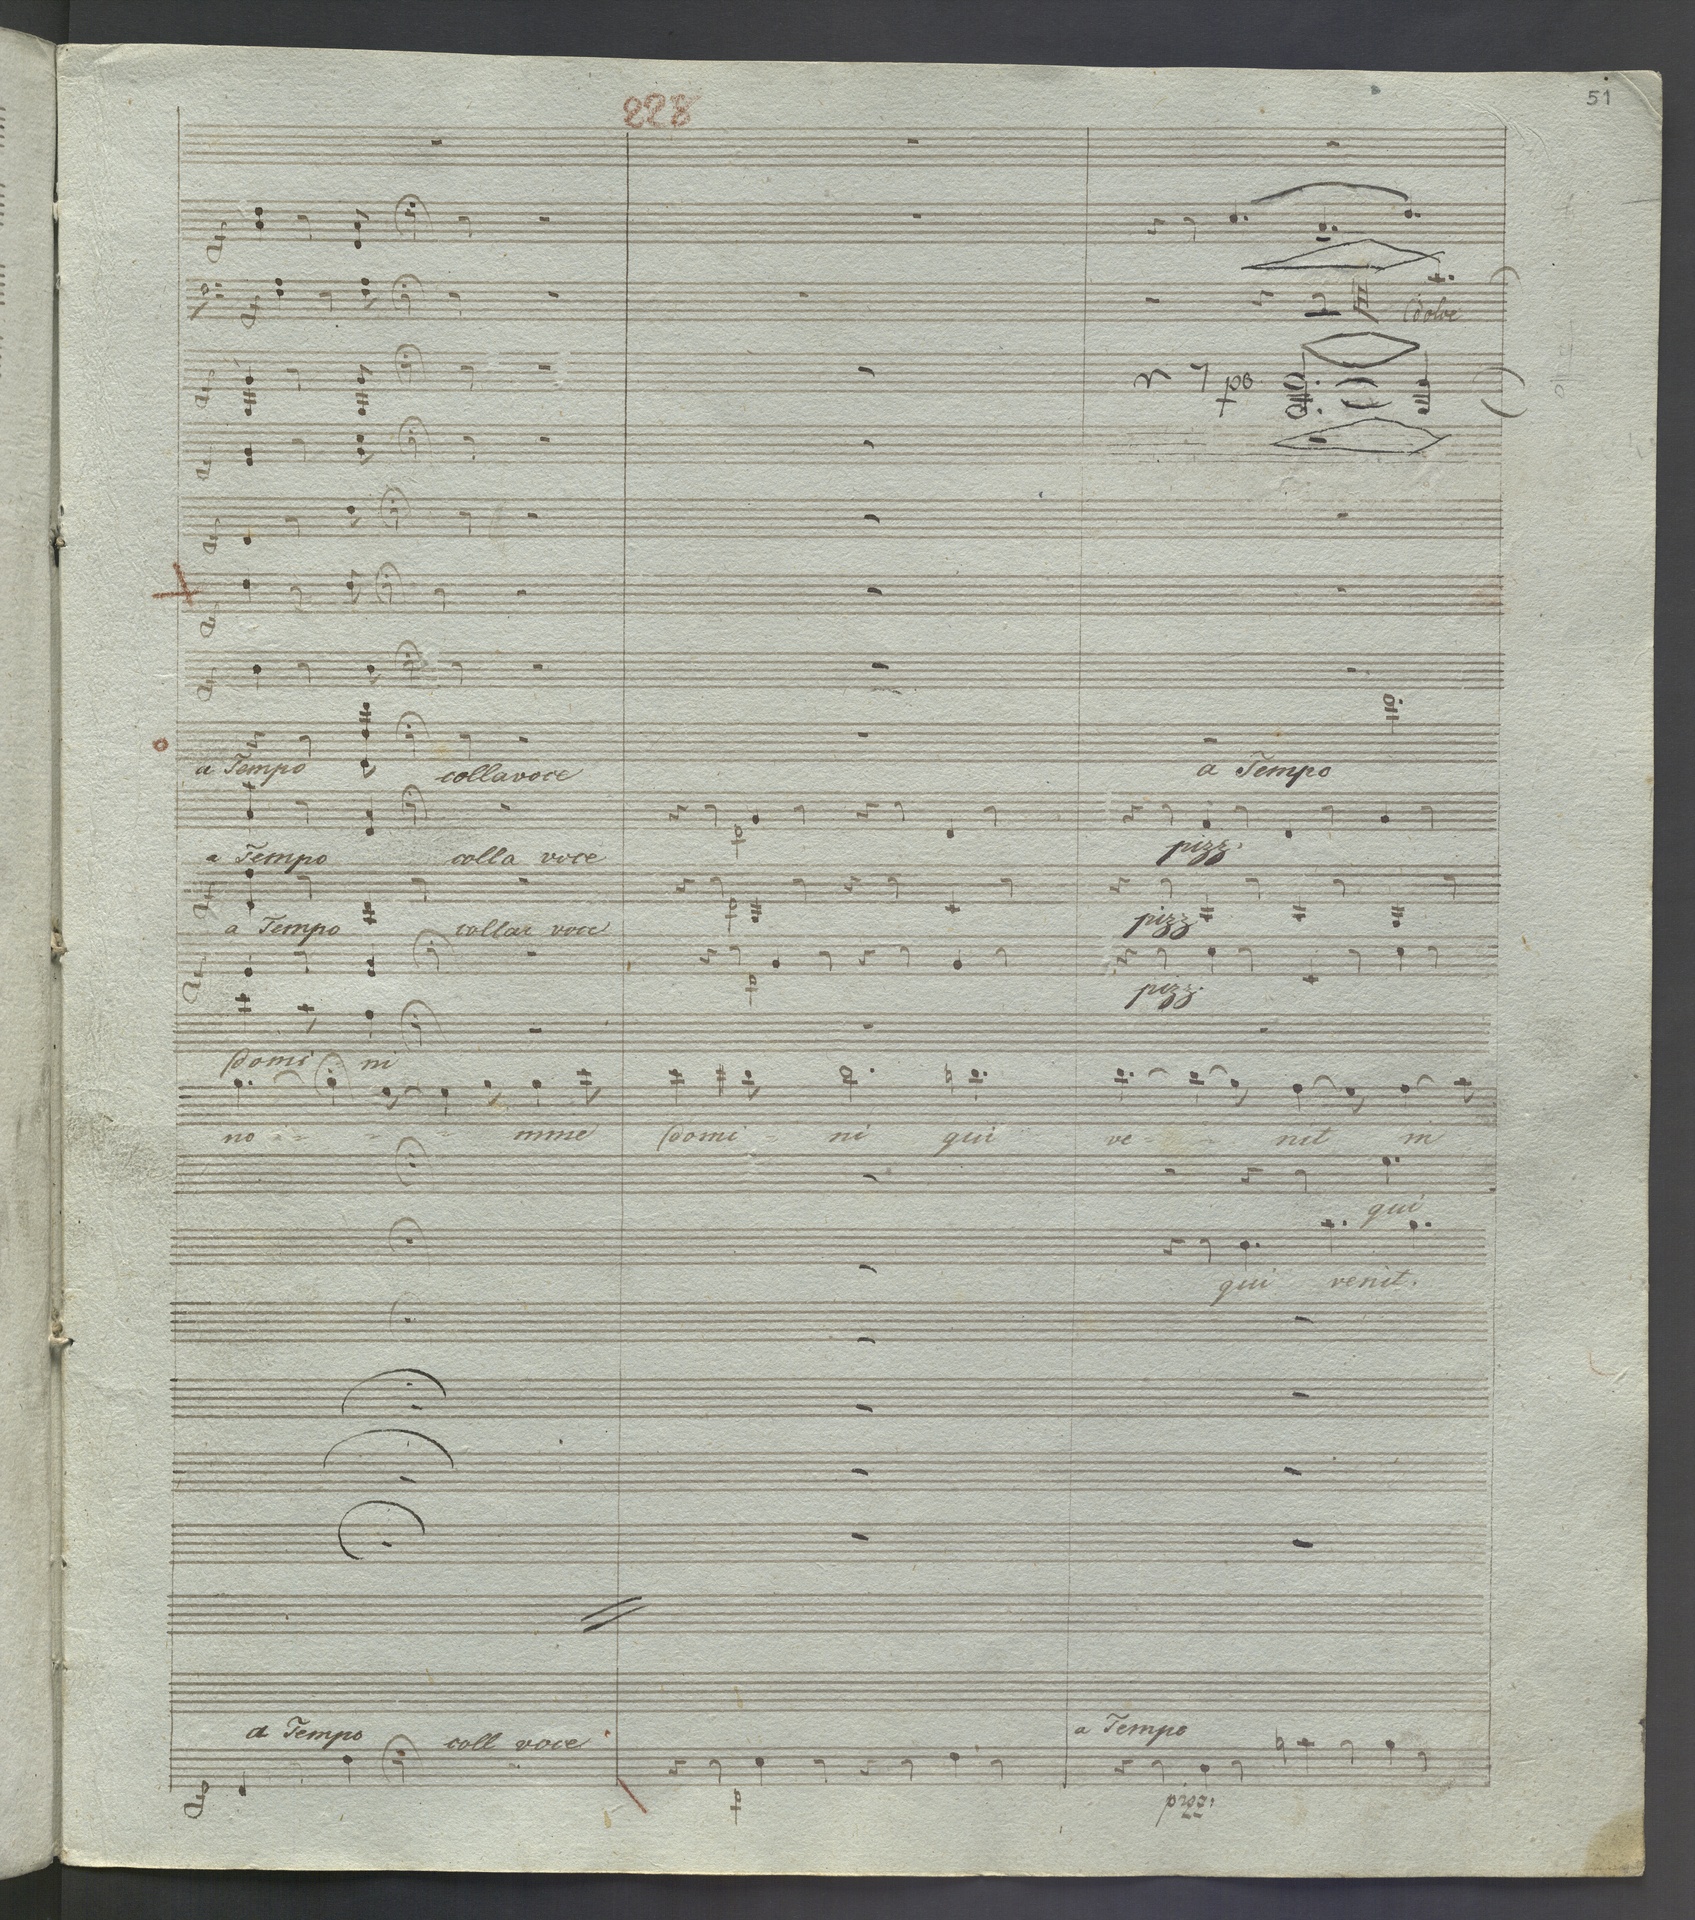 228
51
dolce
po
a Tempo collavoce a Tempo
a Tempo colla voce pizz.
a Tempo collae voce pizz
pizz.
Domi ni
no - - - - mine Domi - ni qui ve - - nit in
qui
qui venit.
a Tempo coll voce a Tempo
p pizz: